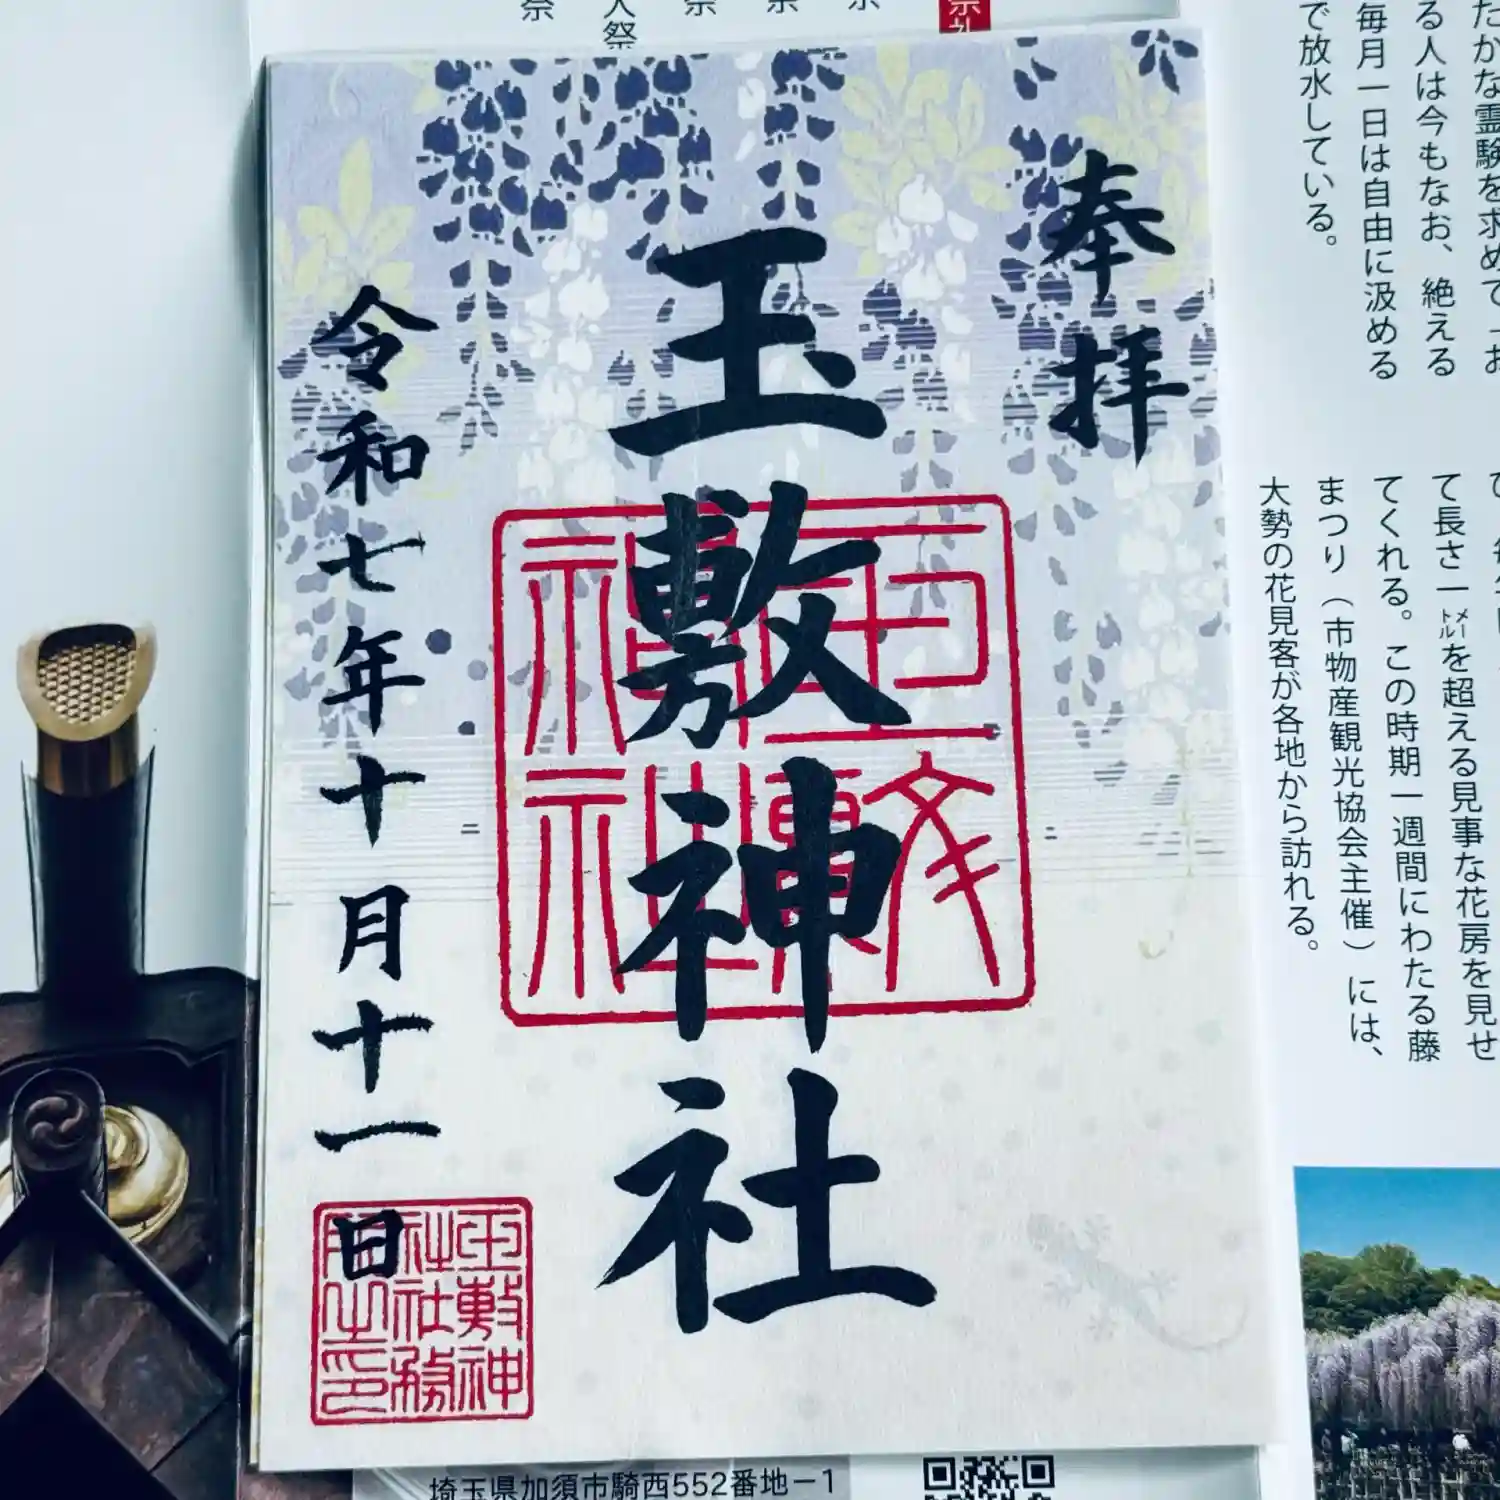 たかな霊験を求めて「お
る人は今もなお、絶える
毎月一日は自由に汲める
で放水している。
て長さ一メートルを超える見事な花房を見せ
てくれる。この時期一週間にわたる藤
まつり(市物産観光協会主催)には、
大勢の花見客が各地から訪れる。
奉拝
玉敷神社
令和七年十月十一日
玉敷神社
玉敷神
社社務
所之印
祭
大祭
祭
祭
埼玉県加須市騎西552番地-1